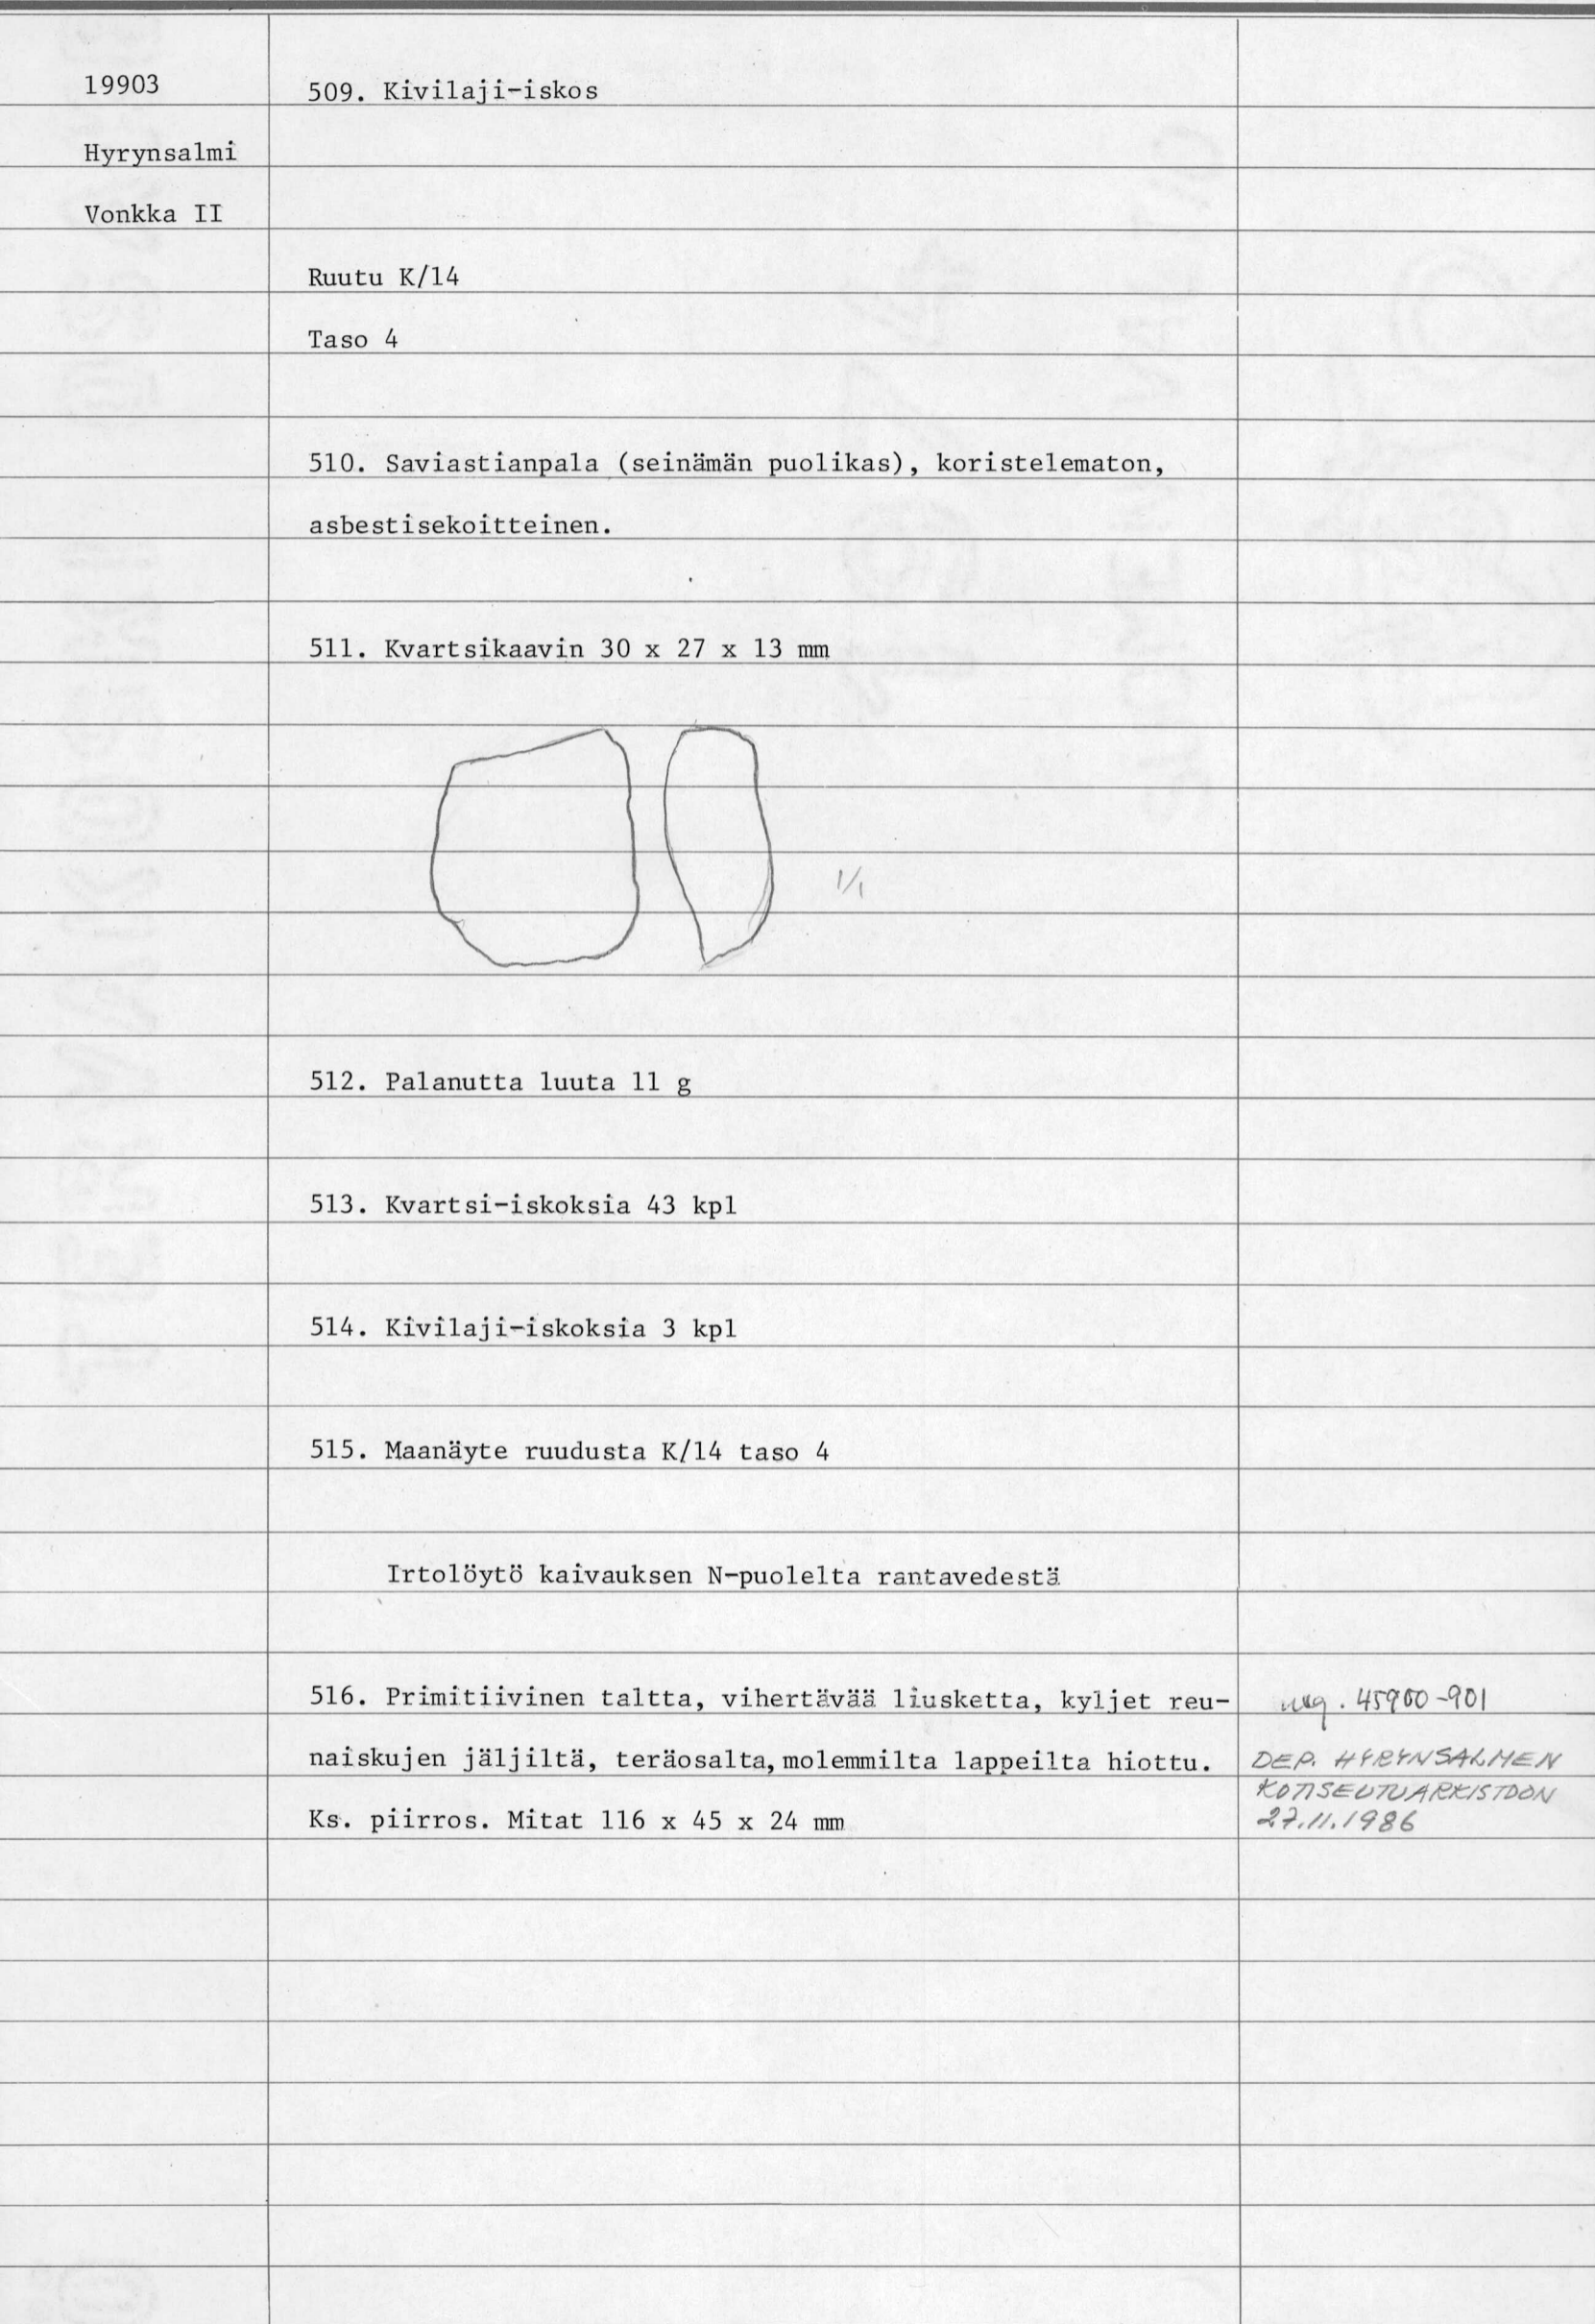 19903
509. Kivilaji-iskos
Hyrynsalmi
Vonkka II
Ruutu K/14
Taso 4
510. Saviastianpala (seinämän puolikas), koristelematon,
asbestisekoitteinen.
511. Kvartsikaavin 30 x 27 x 13 mm
1/1
512. Palanutta luuta 11 g
513. Kvartsi-iskoksia 43 kpl
514. Kivilaji-iskoksia 3 kpl
515. Maanäyte ruudusta K/14 taso 4
Irtolöytö kaivauksen N-puolelta rantavedestä
516. Primitiivinen taltta, vihertävää liusketta, kyljet reu-
naiskujen jäljiltä, teräosalta, molemmilta lappeilta hiottu.
Ks. piirros. Mitat 116 x 45 x 24 mm
neg. 45900-901
DEP. HYRYNSALMEN
KOTISEUTUARKISTOON
27.11.1986